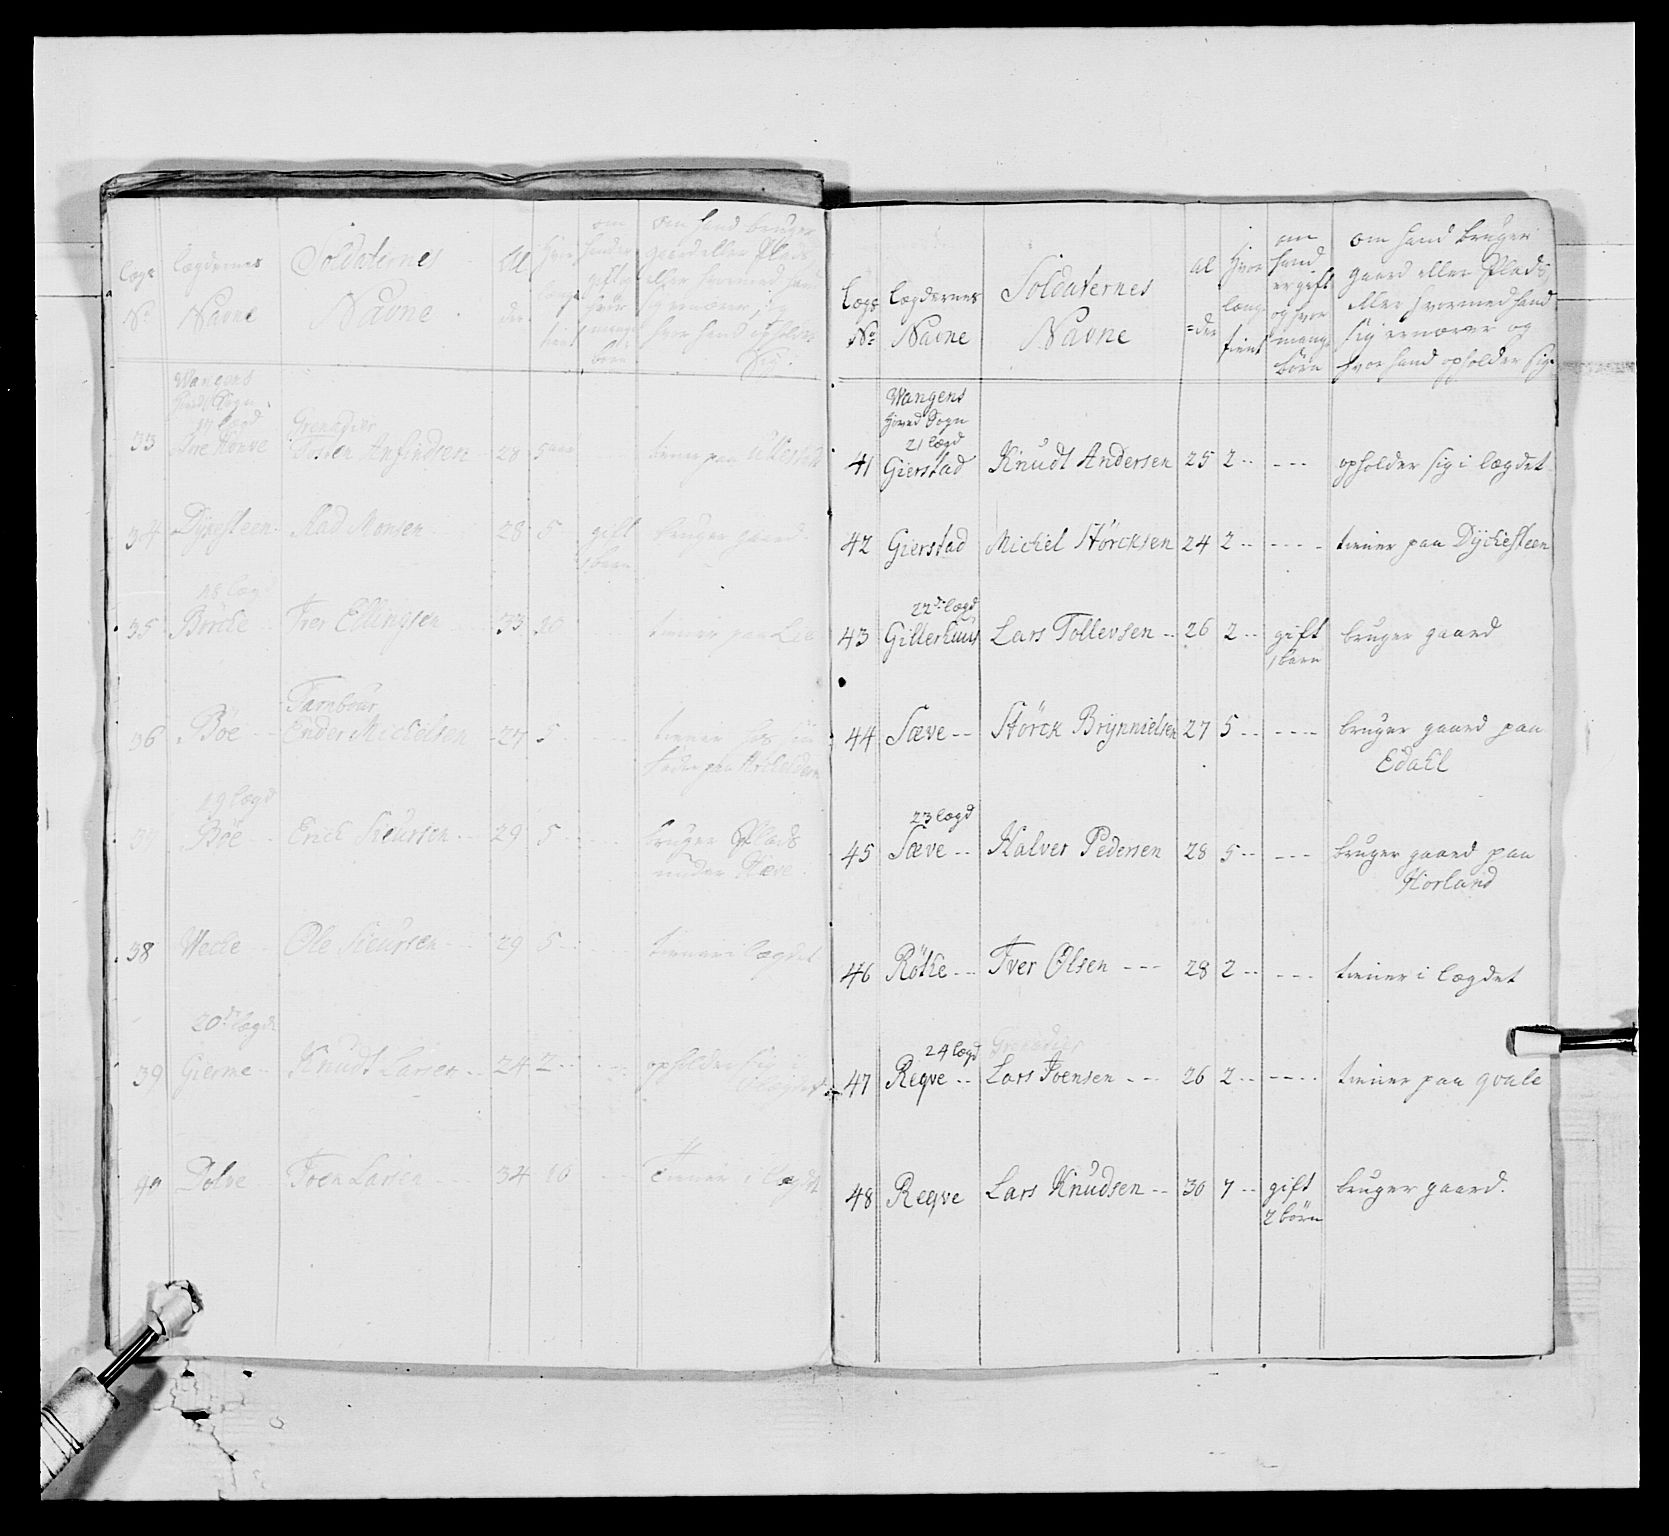 Lægs No
Lægdernes Navne
Soldaternes Navne
Al der
Hvor længe tient
om hand er gift og hvor mange børn
om hand bruger gaard eller Plads eller hvormed hand sig ernærer, og hvor hand opholder sig.
Wangens
Hoved Sogn
17 lægd
Grenadier
33 Anfindsen 28 5 aar tiener paa Ullestad
34 Dyckesteen Monsen 28 5 gift bruger gaard
1 barn
18 lægd
35 Børcke Iver Ellingsen 33 10 tiener paa Lie
Tambour
36 Bøe Ender Michelsen 27 5 tiener hos sin
fader paa
19 lægd
37 Bøe Erick Siursen 29 5 bruger Plads
under
38 Wecke Ole Siursen 29 5 tiener i lægdet
20de lægd
39 Gierme Knudt Larsen 24 2 opholder sig i
lægdet
40 Dolve Joen Larsen 34 10 Tiener i lægdet
Lægs No
Lægdernes Navne
Soldaternes Navne
al =der
Hvor længe tient
om hand er gift og hvor mange børn
om hand bruger gaard eller Plads, eller hvormed hand sig ernærer og hvor hand opholder sig.
Wangens
Hoved Sogn
21 lægd
41 Gierstad Knudt Andersen 25 2 -- --- opholder sig i lægdet
42 Gierstad Michel Størcksen 24 2 -- ---- tiener paa Dyckesteen
22de lægd
43 Gilterhuus Lars Tollevsen -- 26 2 -- gift bruger gaard
1 barn
44 Sæve -- Størck Brynnielsen 27 5 -- ---- bruger gaard paa
Edahl
23 lægd
45 Sæve -- Halver Pedersen 28 5 -- --- bruger gaard paa
Horland
46 Røthe -- Iver Olsen --- 28 2 -- --- tiener i lægdet
24 lægd Grenadier
47 Reqve -- Lars Joensen --- 26 2 -- ---- tiener paa qvale
48 Reqve Lars Knudsen -- 30 7 -- gift bruger gaard.
2 børn